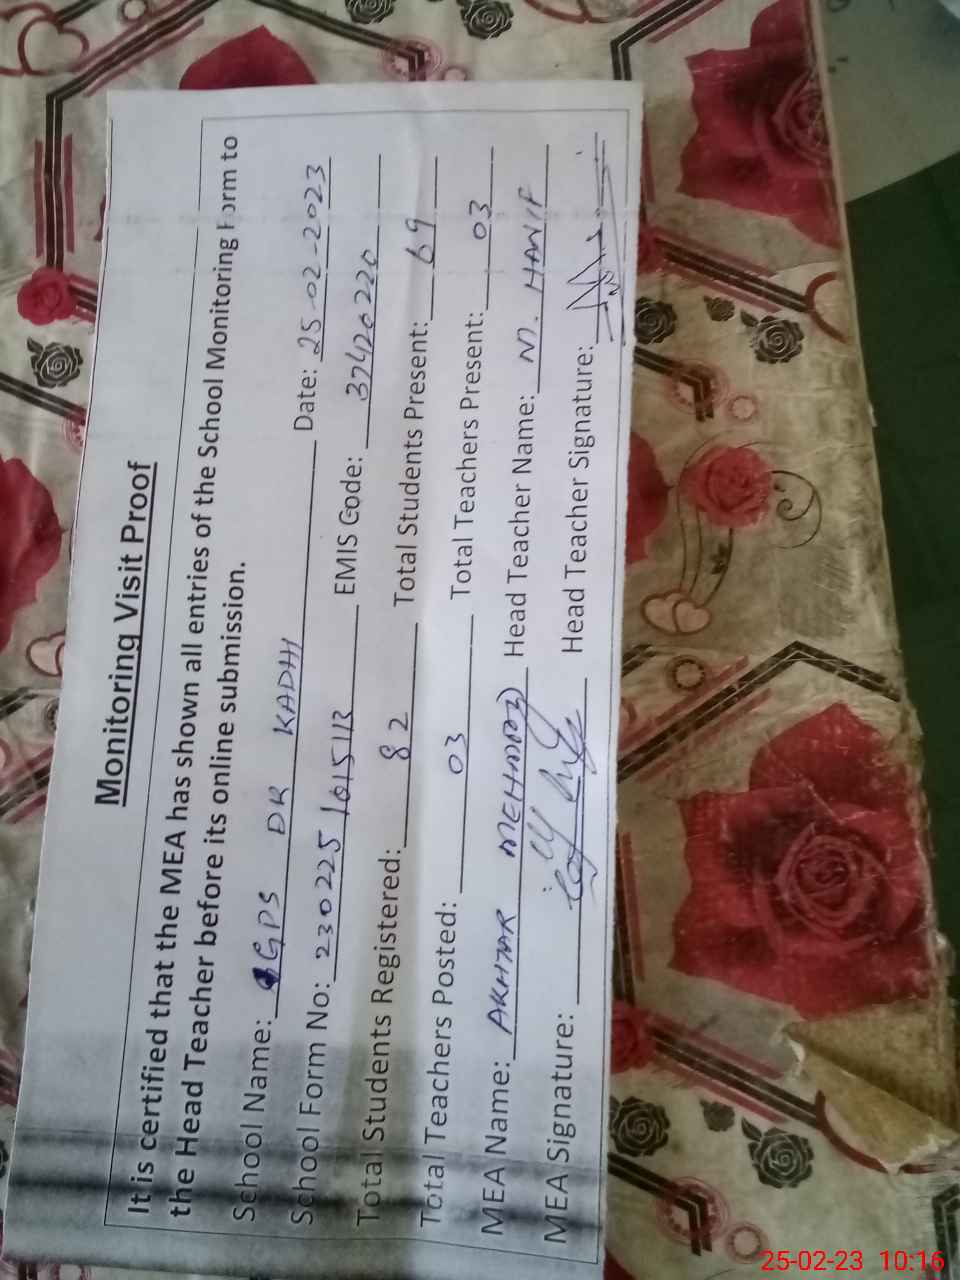 Monitoring Visit Proof
It is certified that the MEA has shown all entries of the School Monitoring Form to
the Head Teacher before its online submission.
School Name: GPS DK KADHI Date: 25-02-2023
School Form No: 230225 EMIS Code: 37420220
Total Students Registered: 82 Total Students Present: 69
Total Teachers Posted: 03 Total Teachers Present: 03
MEA Name: AKHTAR MEHMOOD Head Teacher Name: M. HANIF
MEA Signature: Head Teacher Signature:
25-02-23 10:16